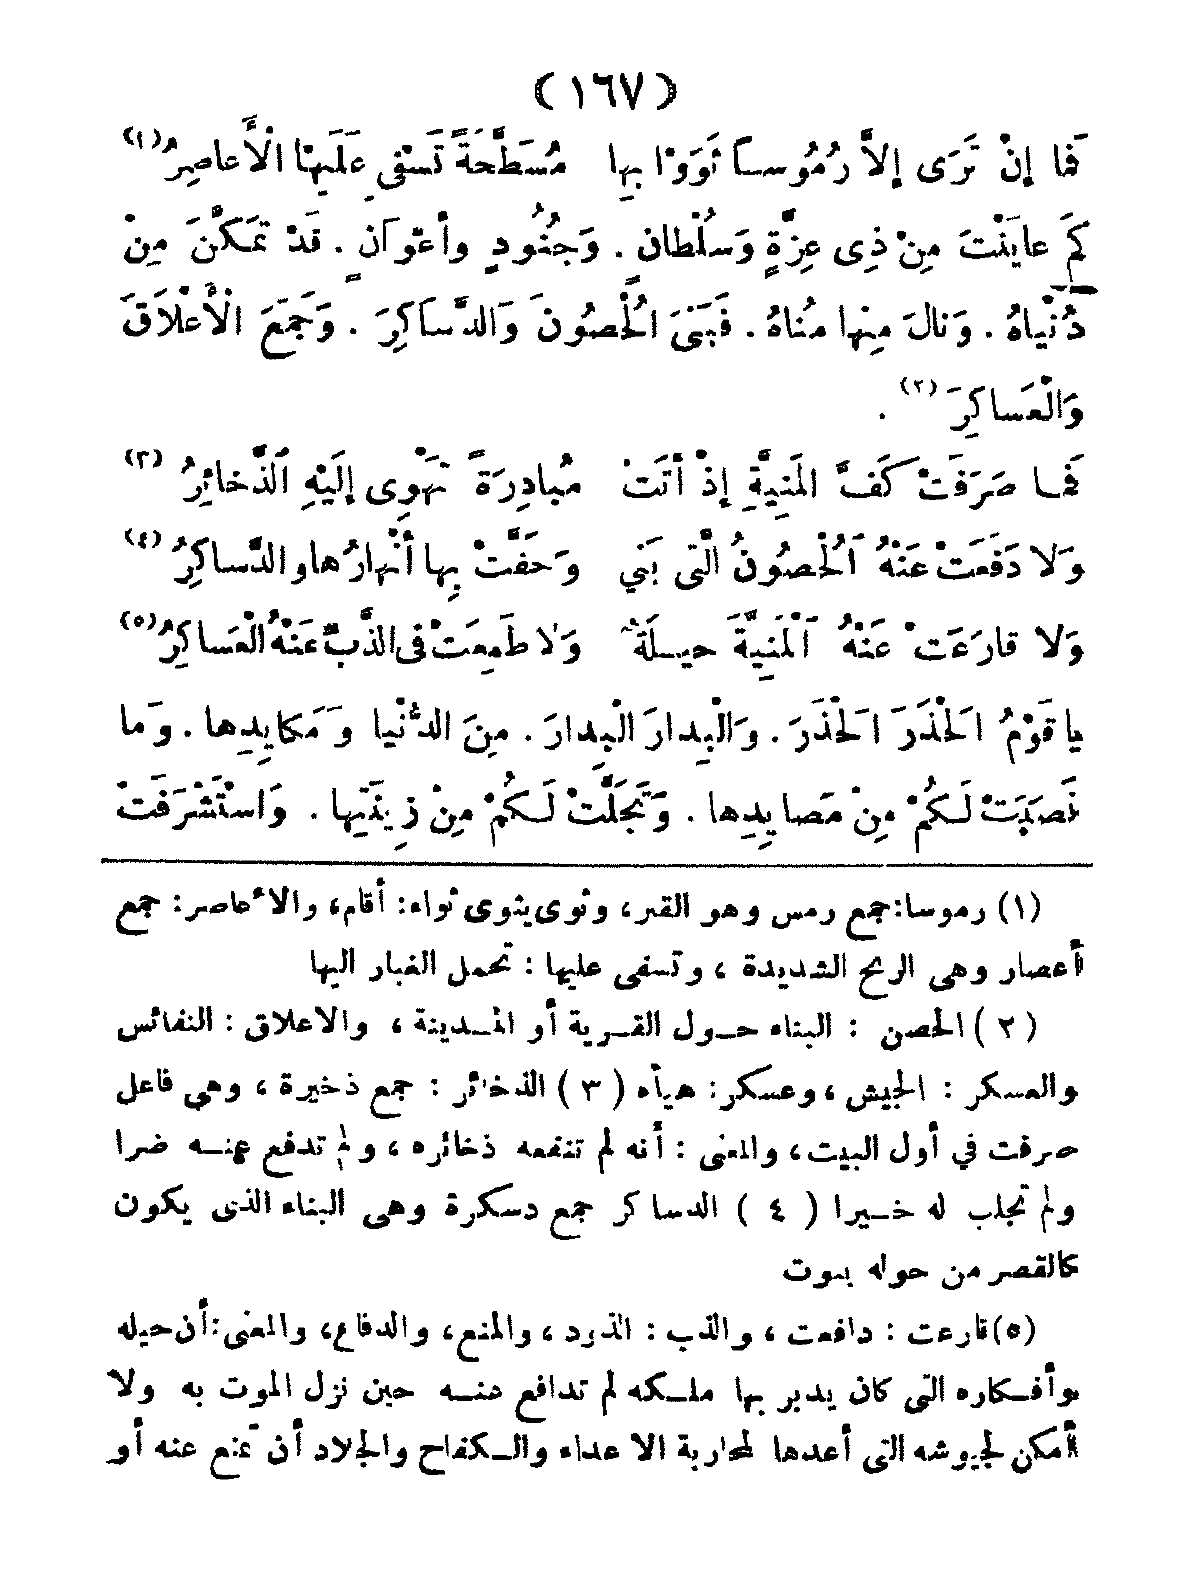 (١٦٧)
فَمَا إِنْ تَرَى إِلاَّ رُمُوساً ثَوَوْا بِها مُسَطَّحَةً تَسْفِى عَلَيْها الْأَعاصِرُ (١)
كَمْ عايَنْتَ مِنْ ذِى عِزَّةٍ وَسُلْطانٍ . وَجُنُودٍ وأَعْوَانٍ . قَدْ تَمَكَّنَ مِنْ
دُنْياهُ . وَنالَ مِنها مُناهُ . فَبَنَى الْحُصُونَ وَالدَّساكِرَ . وَجَمَعَ الْأَعْلاَقَ
وَالْعَساكِرَ (٢) .
فَمـا صَرَفَتْ كَفَّ المَنِيَّةِ إِذْ أَتَتْ مُبادِرَةً تَهْوِى إِلَيْهِ الذَّخائِرُ (٣)
وَلا دَفَعَتْ عَنْهُ الْحُصُونُ الَّتِى بَنِي وَحَفَّتْ بِها أَنْهارُها والدَّساكِرُ (٤)
وَلا قارَعَتْ عَنْهُ الْمَنِيَّةَ حيـلَةٌ وَلا طَمِعَتْ فى الذَّبِّ عَنْهُ الْعَساكِرُ (٥)
يا قَوْمُ الْحَذَرَ الْحَذَرَ . وَالْبِدارَ الْبِدارَ . مِنَ الدُّنْيا وَمَكايِدِها . وَما
نَصَبَتْ لَـكُمْ مِنْ مَصايِدِها . وَتَجَلَّتْ لَـكُمْ مِنْ زِينَتِها . وَاسْتَشْرَفَتْ
(١) رموسا: جمع رمس وهو القبر، وثوى يثوى ثواء: أقام، والاعاصر: جمع
أعصار وهى الريح الشديدة ، وتسفى عليها : تحمل الغبار اليها
(٢) الحصن : البناء حـول القـرية أو المـدينة ، والاعلاق : النفائس
والعسكر : الجيش ، وعسكر: هيأه (٣) الذخائر : جمع ذخيرة ، وهى فاعل
صرفت في أول البيت، والمعنى : أنه لم تنفعه ذخائره ، ولم تدفع عنـه ضرا
ولم تجلب له خـيرا (٤) الدساكر جمع دسكرة وهى البناء الذى يكون
كالقصر من حوله بيوت
(٥) قارعت : دافعت ، والذب : الذود ، والمنع، والدفاع، والمعنى: أن حيله
وأفـكاره التى كان يدبر بها ملـكه لم تدافع عنـه حين نزل الموت به ولا
أمكن لجيوشه التى أعدها لمحاربة الاعداء والـكفاح والجلاد أن تمنع عنه أو